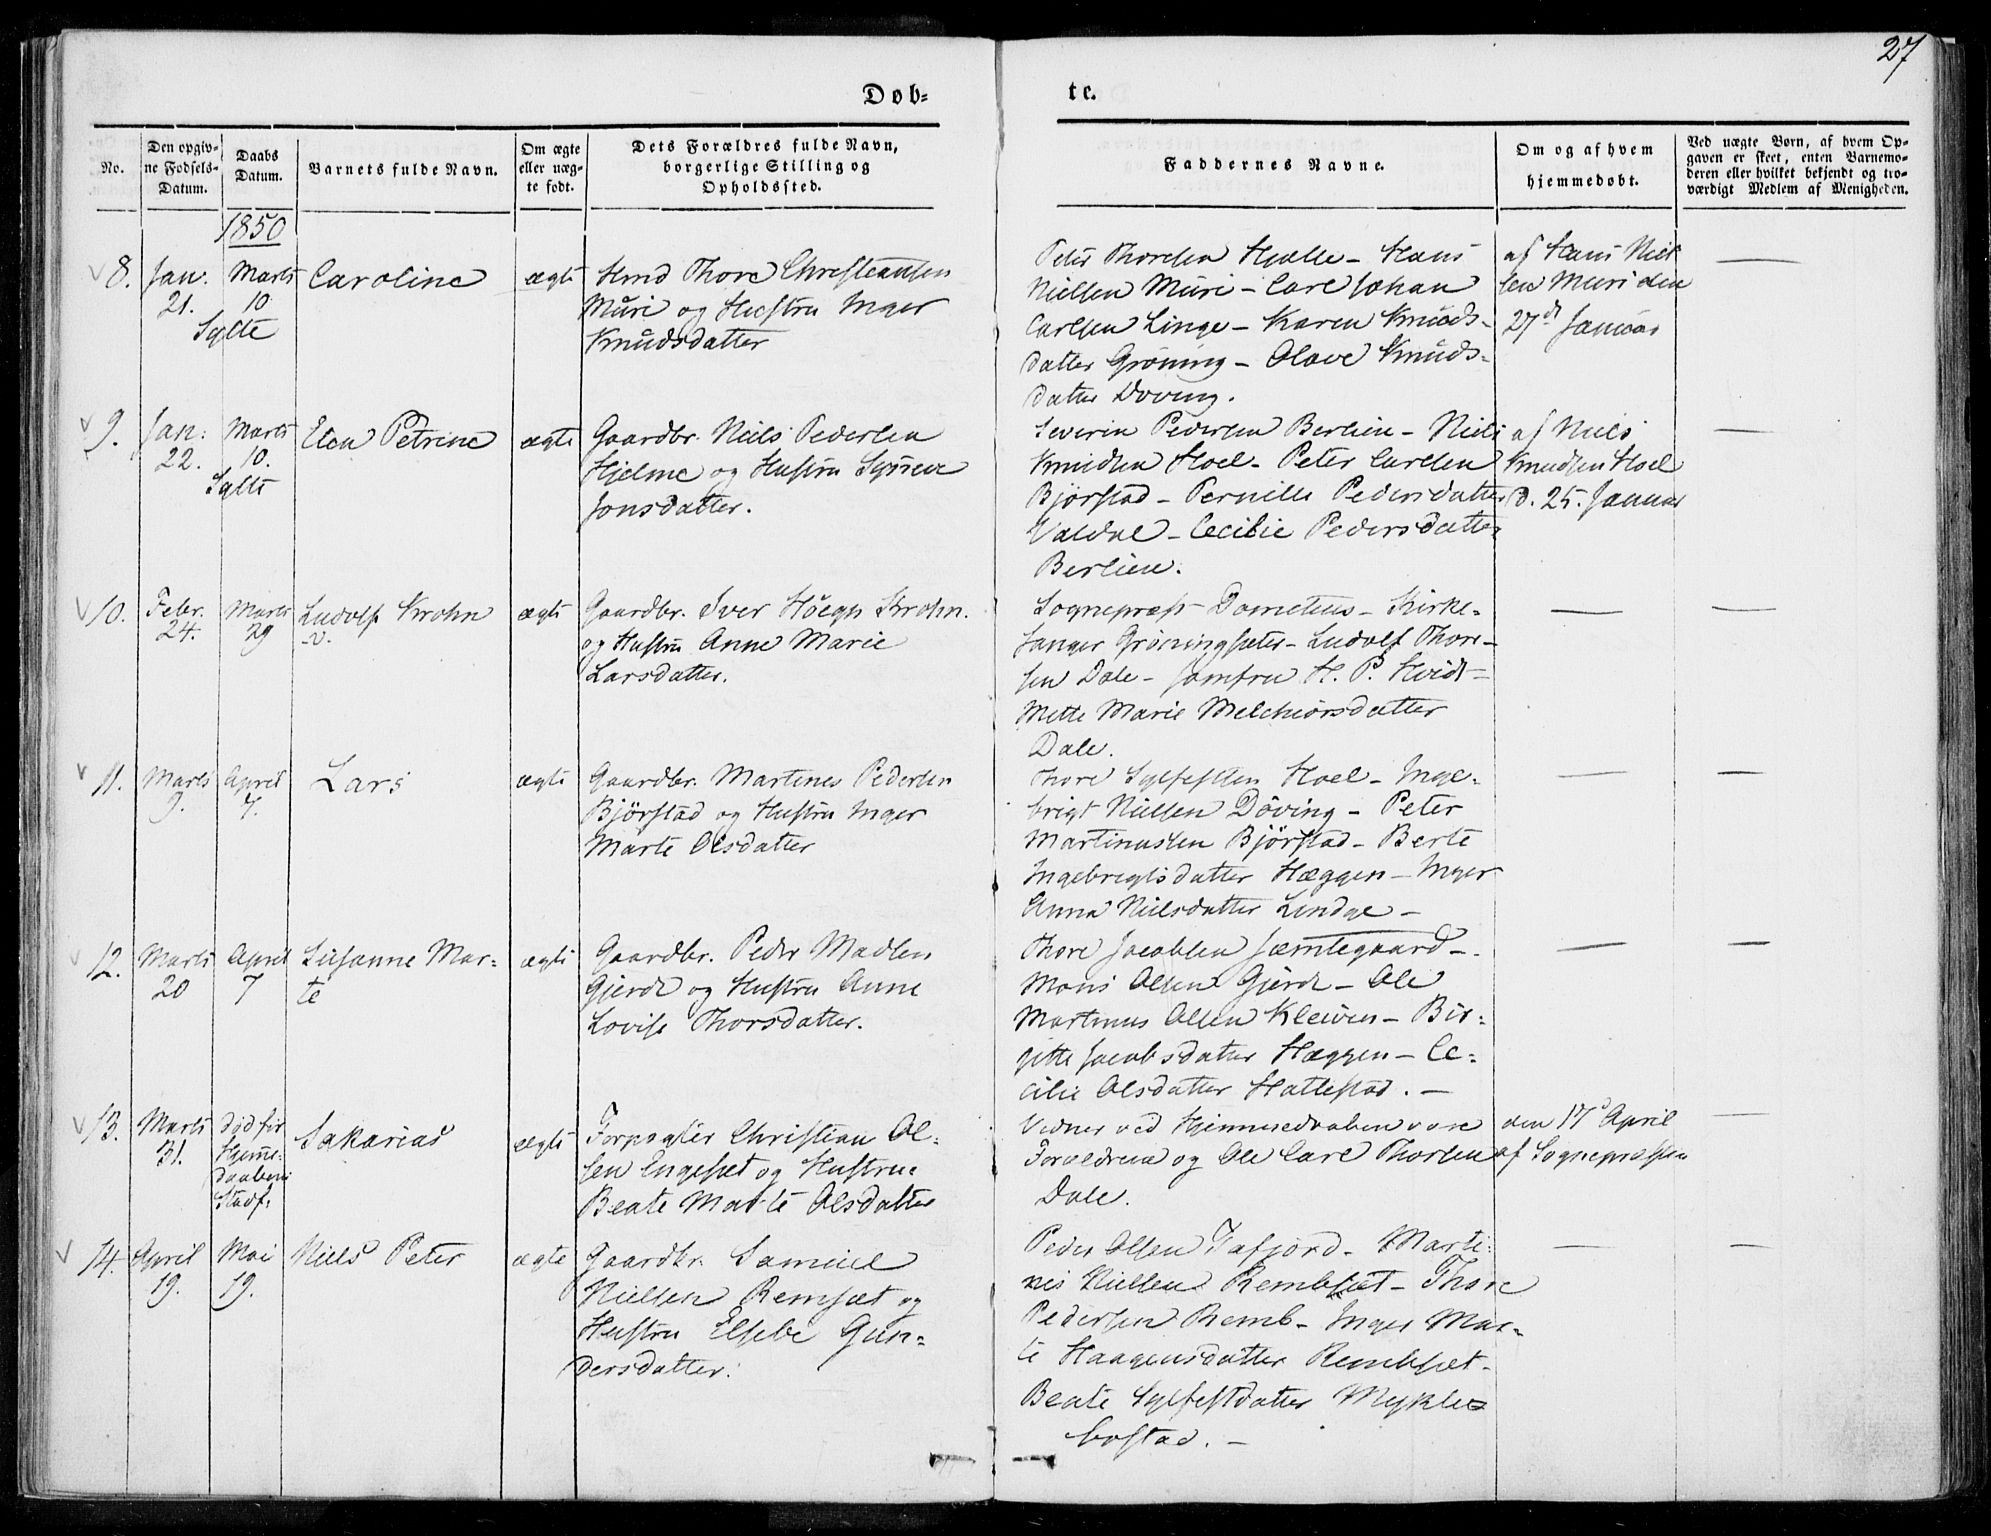 27
Døb-
te.
No.
Den opgiv-
ne Fødsels-
Datum.
Daabs
Datum.
Barnets fulde Navn.
Om ægte
eller uæg-
te født.
Dets Forældres fulde Navn,
borgerlige Stilling og
Opholdssted.
Faddernes Navne.
Om og af hvem
hjemmedøbt.
Ved uægte Børn, af hvem Op-
gaven er skeet, enten Barnemo-
deren eller hvilket bekjendt og tro-
værdigt Medlem af Menigheden.
1850
8.
Jan.
21.
Marts
10
Sylte
Caroline
ægte
Thore Christensen
Muri og Hustru Inger
Knudsdatter
Peter Thoresen Hjelle - Hans
Nielsen Muri - Carl Johan
Carlsen Linge - Karen Knuds-
datter Grøning - Olave Knuds-
datter Døving.
af Hans Niel
sen Muri den
27d Januar
—
9.
Jan:
22.
Marts
10.
Sylte
Elen Petrine
ægte
Gaardbr. Niels Pedersen
Hjelme og Hustru Synneve
Jonsdatter.
Severin Pedersen Berlien - Niels
Knudsen Hoel - Peter Carlsen
Bjørstad - Pernille Pedersdatter
Valdal - Cecilie Pedersdatter
Berlien.
af Niels
Knudsen Hoel
d. 25. Januar
—
10.
Febr.
24.
Marts
29
Ludolf Krohn
v.
ægte
Gaardbr. Iver Höegh Krohn.
og Hustru Anne Marie
Larsdatter.
Sognepræst Dometius - Kirke-
sanger Grøningsæter - Ludolf Thore-
sen Dale - Jomfru H. P. Hvidt -
Mette Marie Melchiorsdatter
Dale.
—
—
11.
Marts
9.
April
7.
Lars
ægte
Gaardbr. Martines Pedersen
Bjørstad og Hustru Inger
Marte Olsdatter
Thore Sylfesten Hoel - Inge-
brigt Nielsen Döving - Peter
Martinussen Bjørstad - Berte
Ingebrigtsdatter Hæggen - Inger
Anna Nielsdatter Lindge -
—
—
12.
Marts
20
April
7
Susanne Mar-
te
ægte
Gaardbr. Peder Madsen
Gjerde og Hustru Anne
Lovise Thorsdatter.
Thore Jacobsen Jæmtegaard -
Mons Olsen Gjerde - Ole
Martinus Olsen Kleiven - Bir-
gitte Jacobsdatter Hæggen - Ce-
cilie Olsdatter Hattestad. -
—
—
13.
Marts
31.
død før
Hjemme-
daabens
Stadf.
Sakarias
ægte
Forpagter Christian Ol-
sen Engeset og Hustrue
Beate Marte Olsdatter
Vidner ved Hjemmedaaben vare
Forældrene og Ole Carl Thorsen
Dale.
den 17d April
af Sognepræsten
—
14.
April
19.
Mai
19.
Niels Peter
ægte
Gaardbr. Samuel
Nielsen Remsæt og
Hustru Elsebe Gun-
dersdatter.
Peder Olsen Tafjord - Marti-
nus Nielsen Rembsæt - Thore
Pedersen Remb - Inger Mar-
te Haagensdatter Rembsæt -
Beate Sylfestdatter Mykle-
bostad. -
—
—